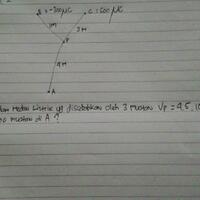 B = -300μC
C = 500μC
1M
3M
P
4M
A
Medan Listrik yg disebabkan oleh 3 muatan Vp = 4,5 . 10
muatan di A ?